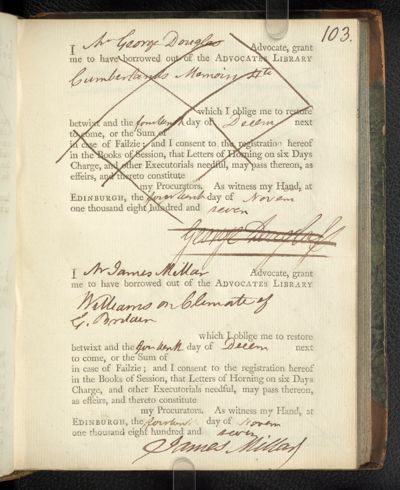 103.
I Mr George Douglas Advocate, grant
me to have borrowed out of the ADVOCATES LIBRARY
Cumberlands Memoirs 4to
which I oblige me to restore
betwixt and the fourteenth day of Decem next
to come, or the Sum of
in case of Failzie; and I consent to the registration hereof
in the Books of Session, that Letters of Horning on six Days
Charge, and other Executorials needful, may pass thereon, as
effeirs, and thereto constitute
my Procurators. As witness my Hand, at
EDINBURGH, the fourteenth day of Novem
one thousand eight hundred and seven
George Douglas
I Mr James Millar Advocate, grant
me to have borrowed out of the ADVOCATES LIBRARY
Williams on Climate of
G. Britain
which I oblige me to restore
betwixt and the fourteenth day of Decem next
to come, or the Sum of
in case of Failzie; and I consent to the registration hereof
in the Books of Session, that Letters of Horning on six Days
Charge, and other Executorials needful, may pass thereon,
as effeirs, and thereto constitute
my Procurators. As witness my Hand, at
EDINBURGH, the fourteenth day of Novem
one thousand eight hundred and seven
James Millar